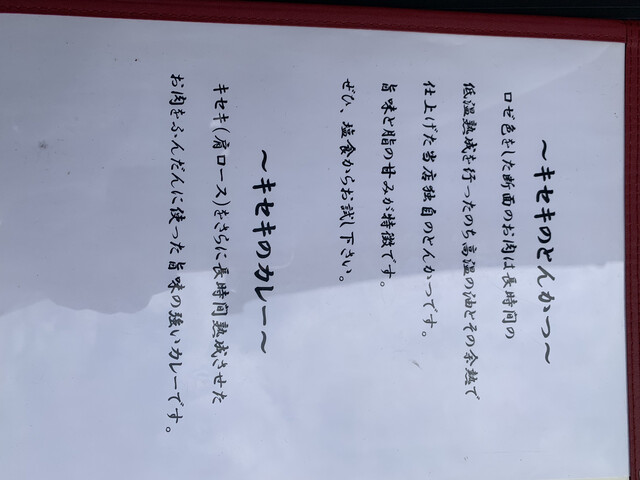 ～キセキのとんかつ～
ロゼ色をした断面のお肉は長時間の
低温熟成を行ったのち高温の油とその余熱で
仕上げた当店独自のとんかつです。
旨味と脂の甘みが特徴です。
ぜひ、塩食からお試し下さい。
～キセキのカレー～
キセキ(肩ロース)をさらに長時間熟成させた
お肉をふんだんに使った旨味の強いカレーです。